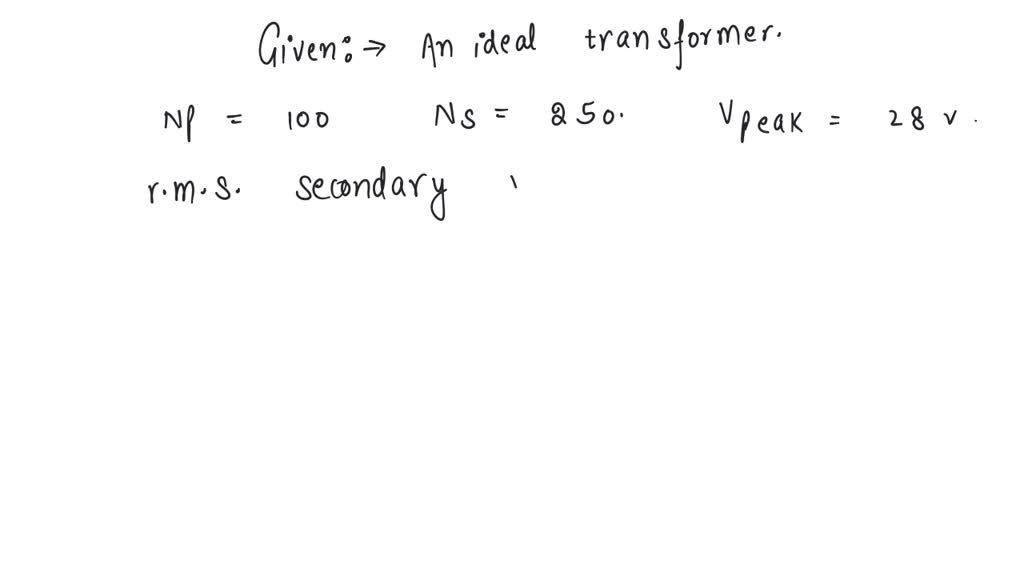 Given:→ An ideal transformer.
Np = 100 Ns = 250. Vpeak = 28 v.
r.m.s. secondary